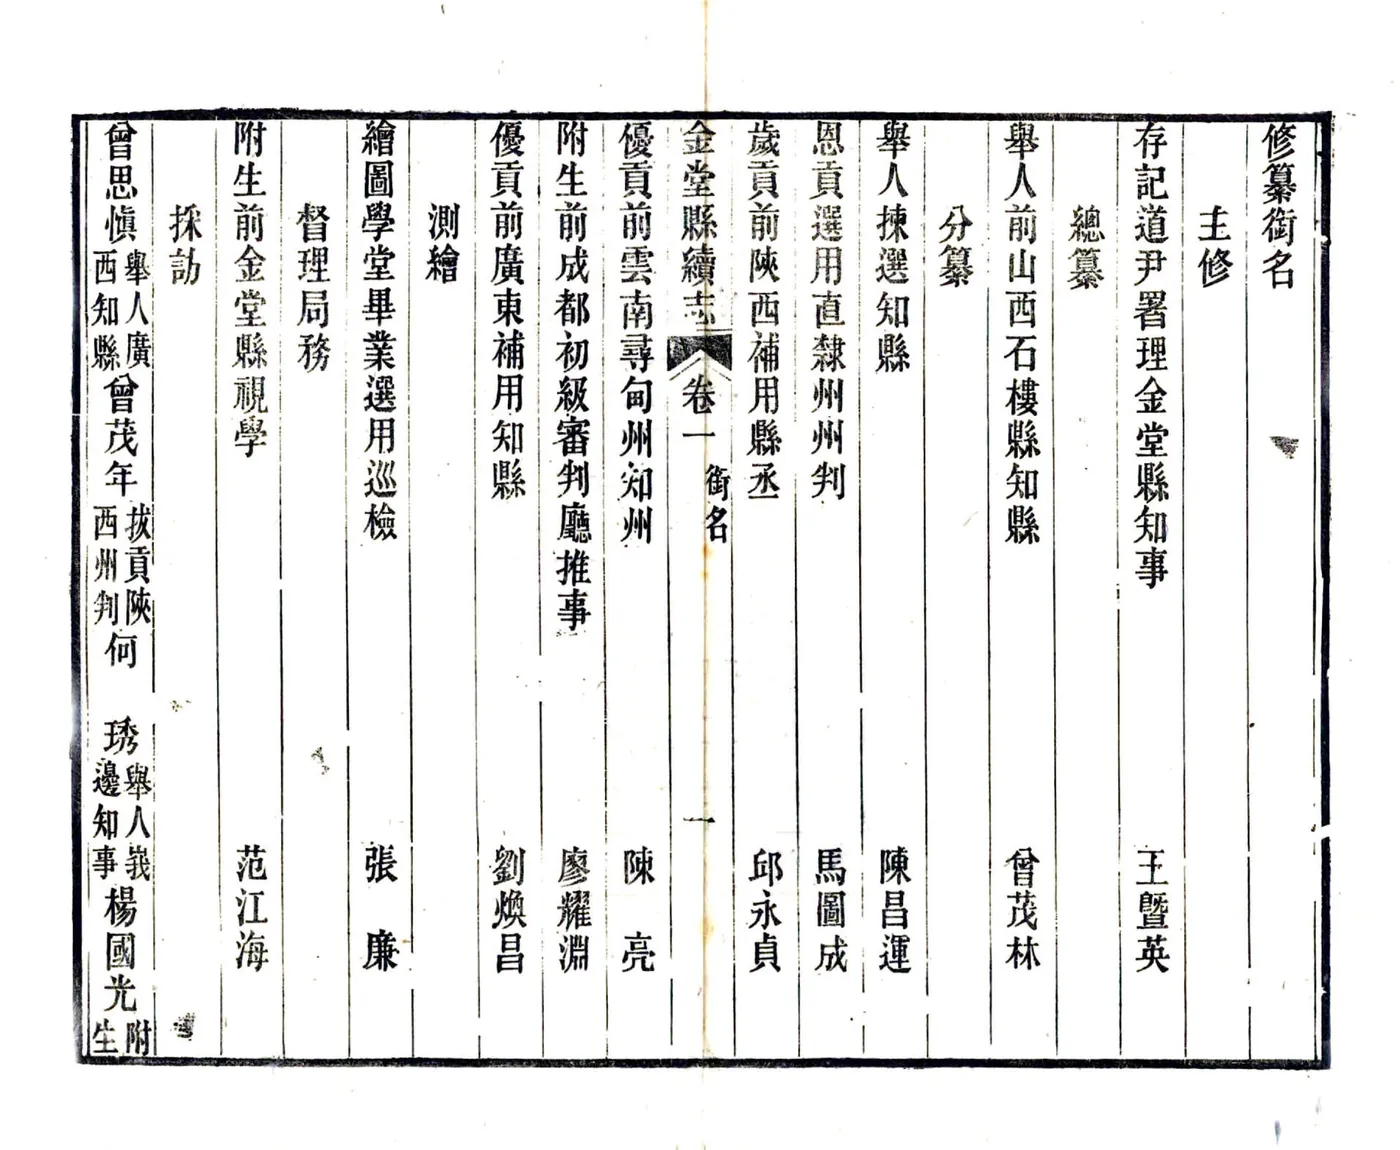 修纂銜名
主修
存記道尹署理金堂縣知事 王暨英
總纂
舉人前山西石樓縣知縣 曾茂林
分纂
舉人揀選知縣 陳昌運
恩貢選用直隸州州判 馬圖成
歲貢前陝西補用縣丞 邱永貞
金堂縣續志 卷一 銜名 一
優貢前雲南尋甸州知州 陳亮
附生前成都初級審判廳推事 廖耀淵
優貢前廣東補用知縣 劉煥昌
測繪
繪圖學堂畢業選用巡檢 張廉
督理局務
附生前金堂縣視學 范江海
採訪
曾思慎 舉人廣西知縣 曾茂年 拔貢陝西州判 何琇 舉人峩邊知事 楊國光 附生